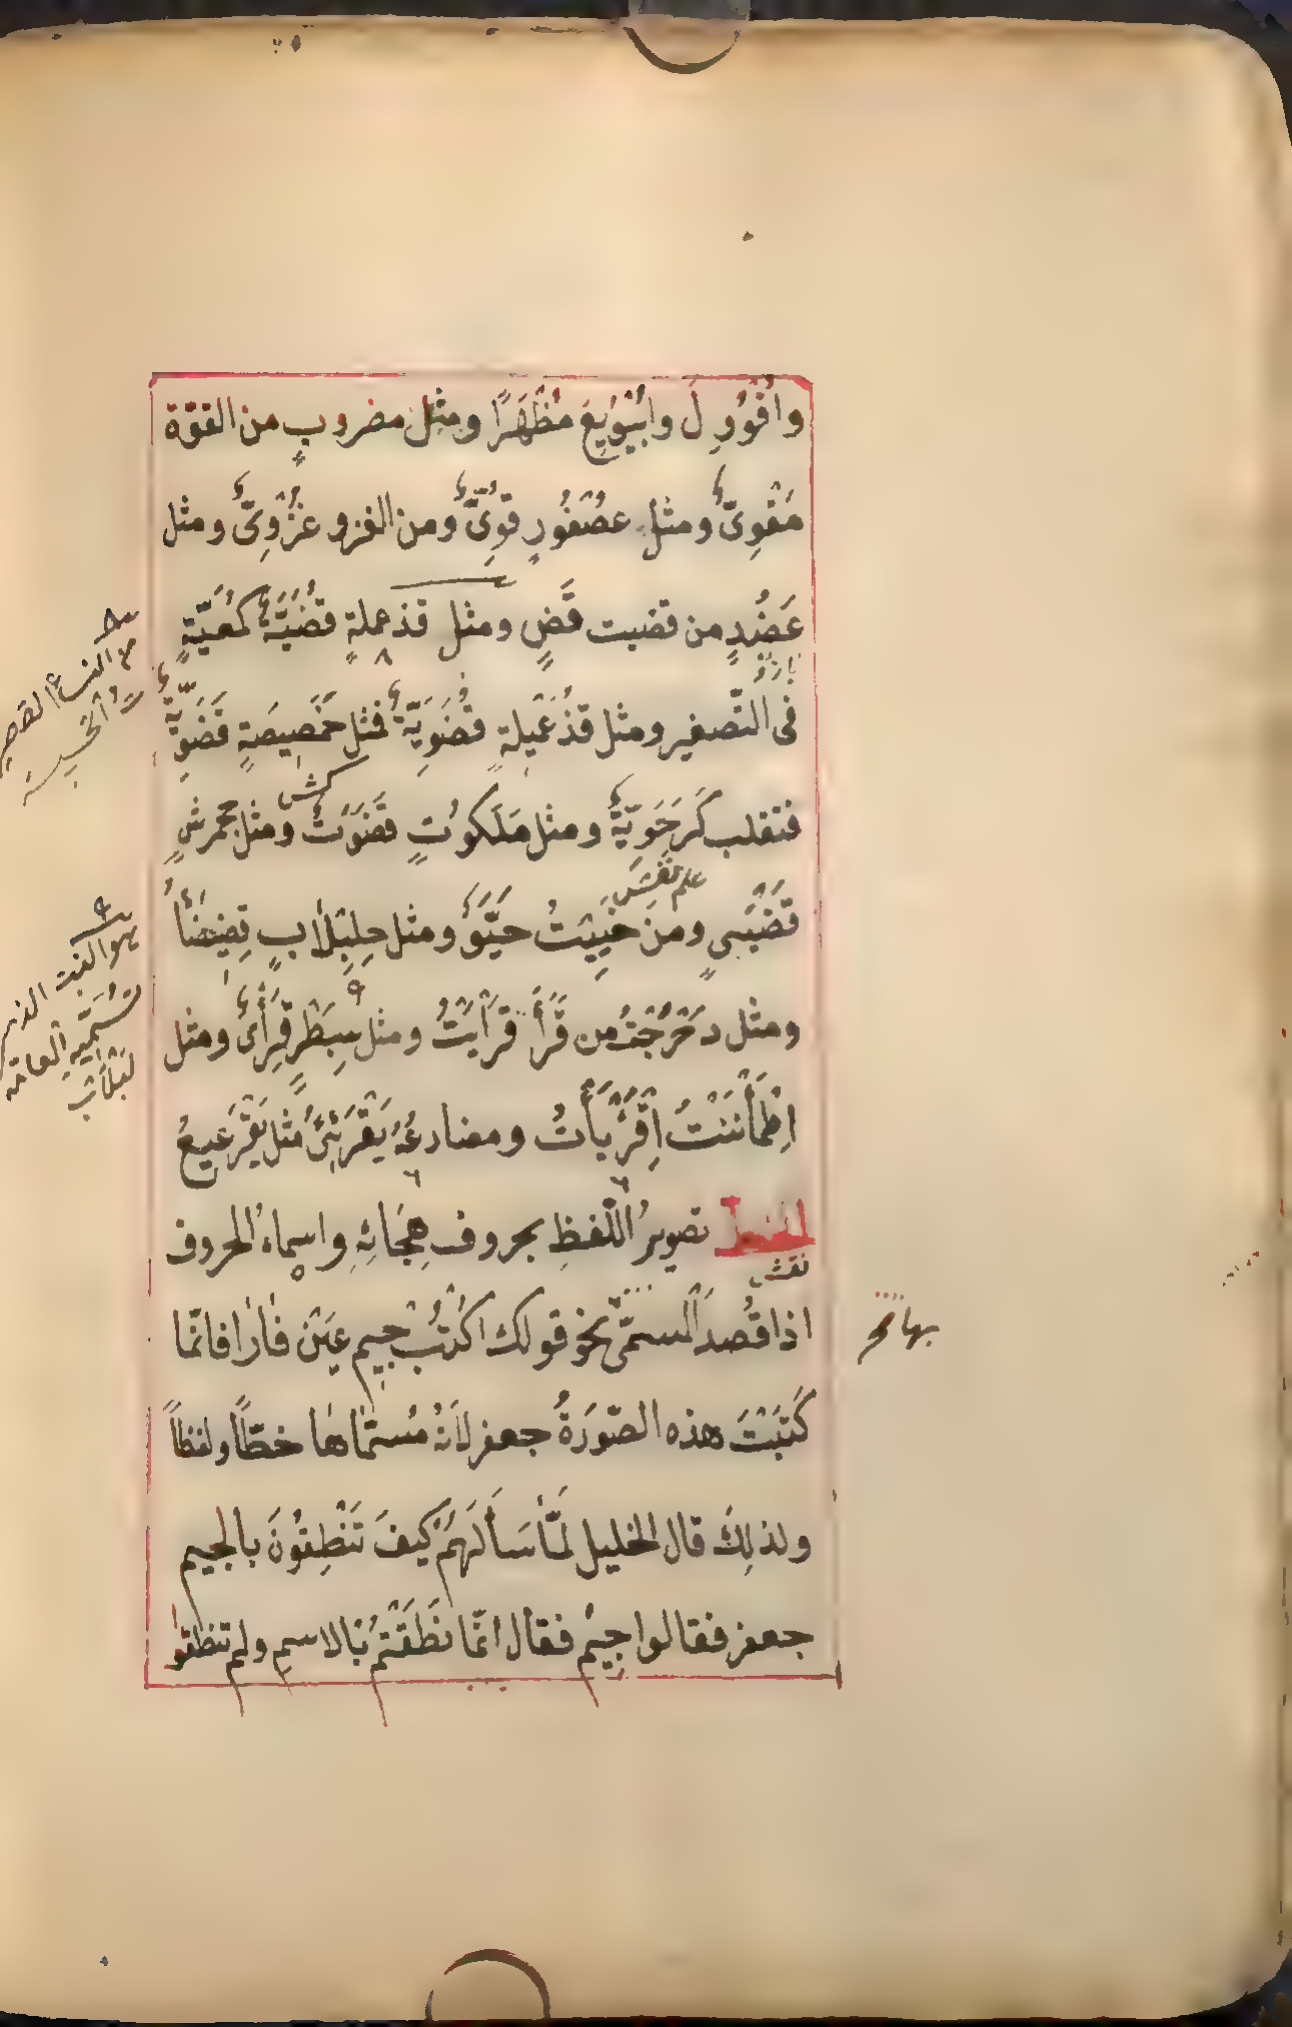 وَاُقْوُوِلَ وابْيُوِيِعَ مُظْهَرًا ومِثل مضروبٍ من القوّة
مَقْوِىٌّ ومثل عُصْفُورٍ قُوِّىٌّ ومن الغزو غُزْوِىٌّ ومثل
عَضُدٍ من قضيت قَضٍ ومثل قذعملةٍ قُضَيَّةٌ كمُعَيَّةٍ
فى التّصغير ومثل قُذَعْمِيلةٍ قُضَوِيَّةٌ فمثل حَمَصِيصَةٍ قَضَوِيَّةٌ
فتقلب كَرَحَوِيَّةٌ ومثل مَلَكوُتٍ قَضَوُتٌ ومثل جحمرشٍ
قَضْيَىٍ ومن حَيِيْتُ حَيَّوٌ ومثل حِلِبْلَابٍ قِضِيضَاءٌ
ومثل دحْرَجْتُ من قَرَأَ قَرْاَيْتُ ومثل سِبَطْرٍ قِرَأْىٌ ومثل
اِطْمَأْنَنْتُ اِقْرَأْيَأْتُ ومضارعُهُ يَقْرَئِىُّ مثل يَقْرَعِيعُ
الخط تصويرُ اللّفظِ بحروف هِجَائِهِ واسماءُ الحروف
اذا قُصِدَ المسمّى نحو قولك اكتُبْ جيم عَيْن فا را فانّما
كَتَبْتَ هذه الصّورَةُ جعفر لانّهُ مُسمّاها خطّاً ولفظاً
ولذلِكَ قال الخليل لَمَّا سَأَلَهُمْ كيفَ تَنْطِقُونَ بالجيم
جعفر فقالوا جيمْ فقال انّما نَطَقْتُمْ بالاسمِ ولم تنطقوا
نقش
هو النبت الذى
تسمّيه العامّه
لبلاب